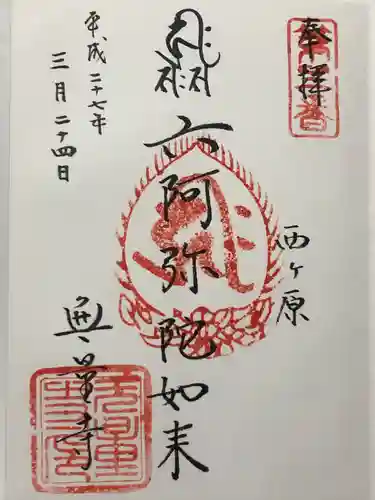 奉拝
西ヶ原
六阿弥陀如来
平成二十七年
三月二十四日
無量寺